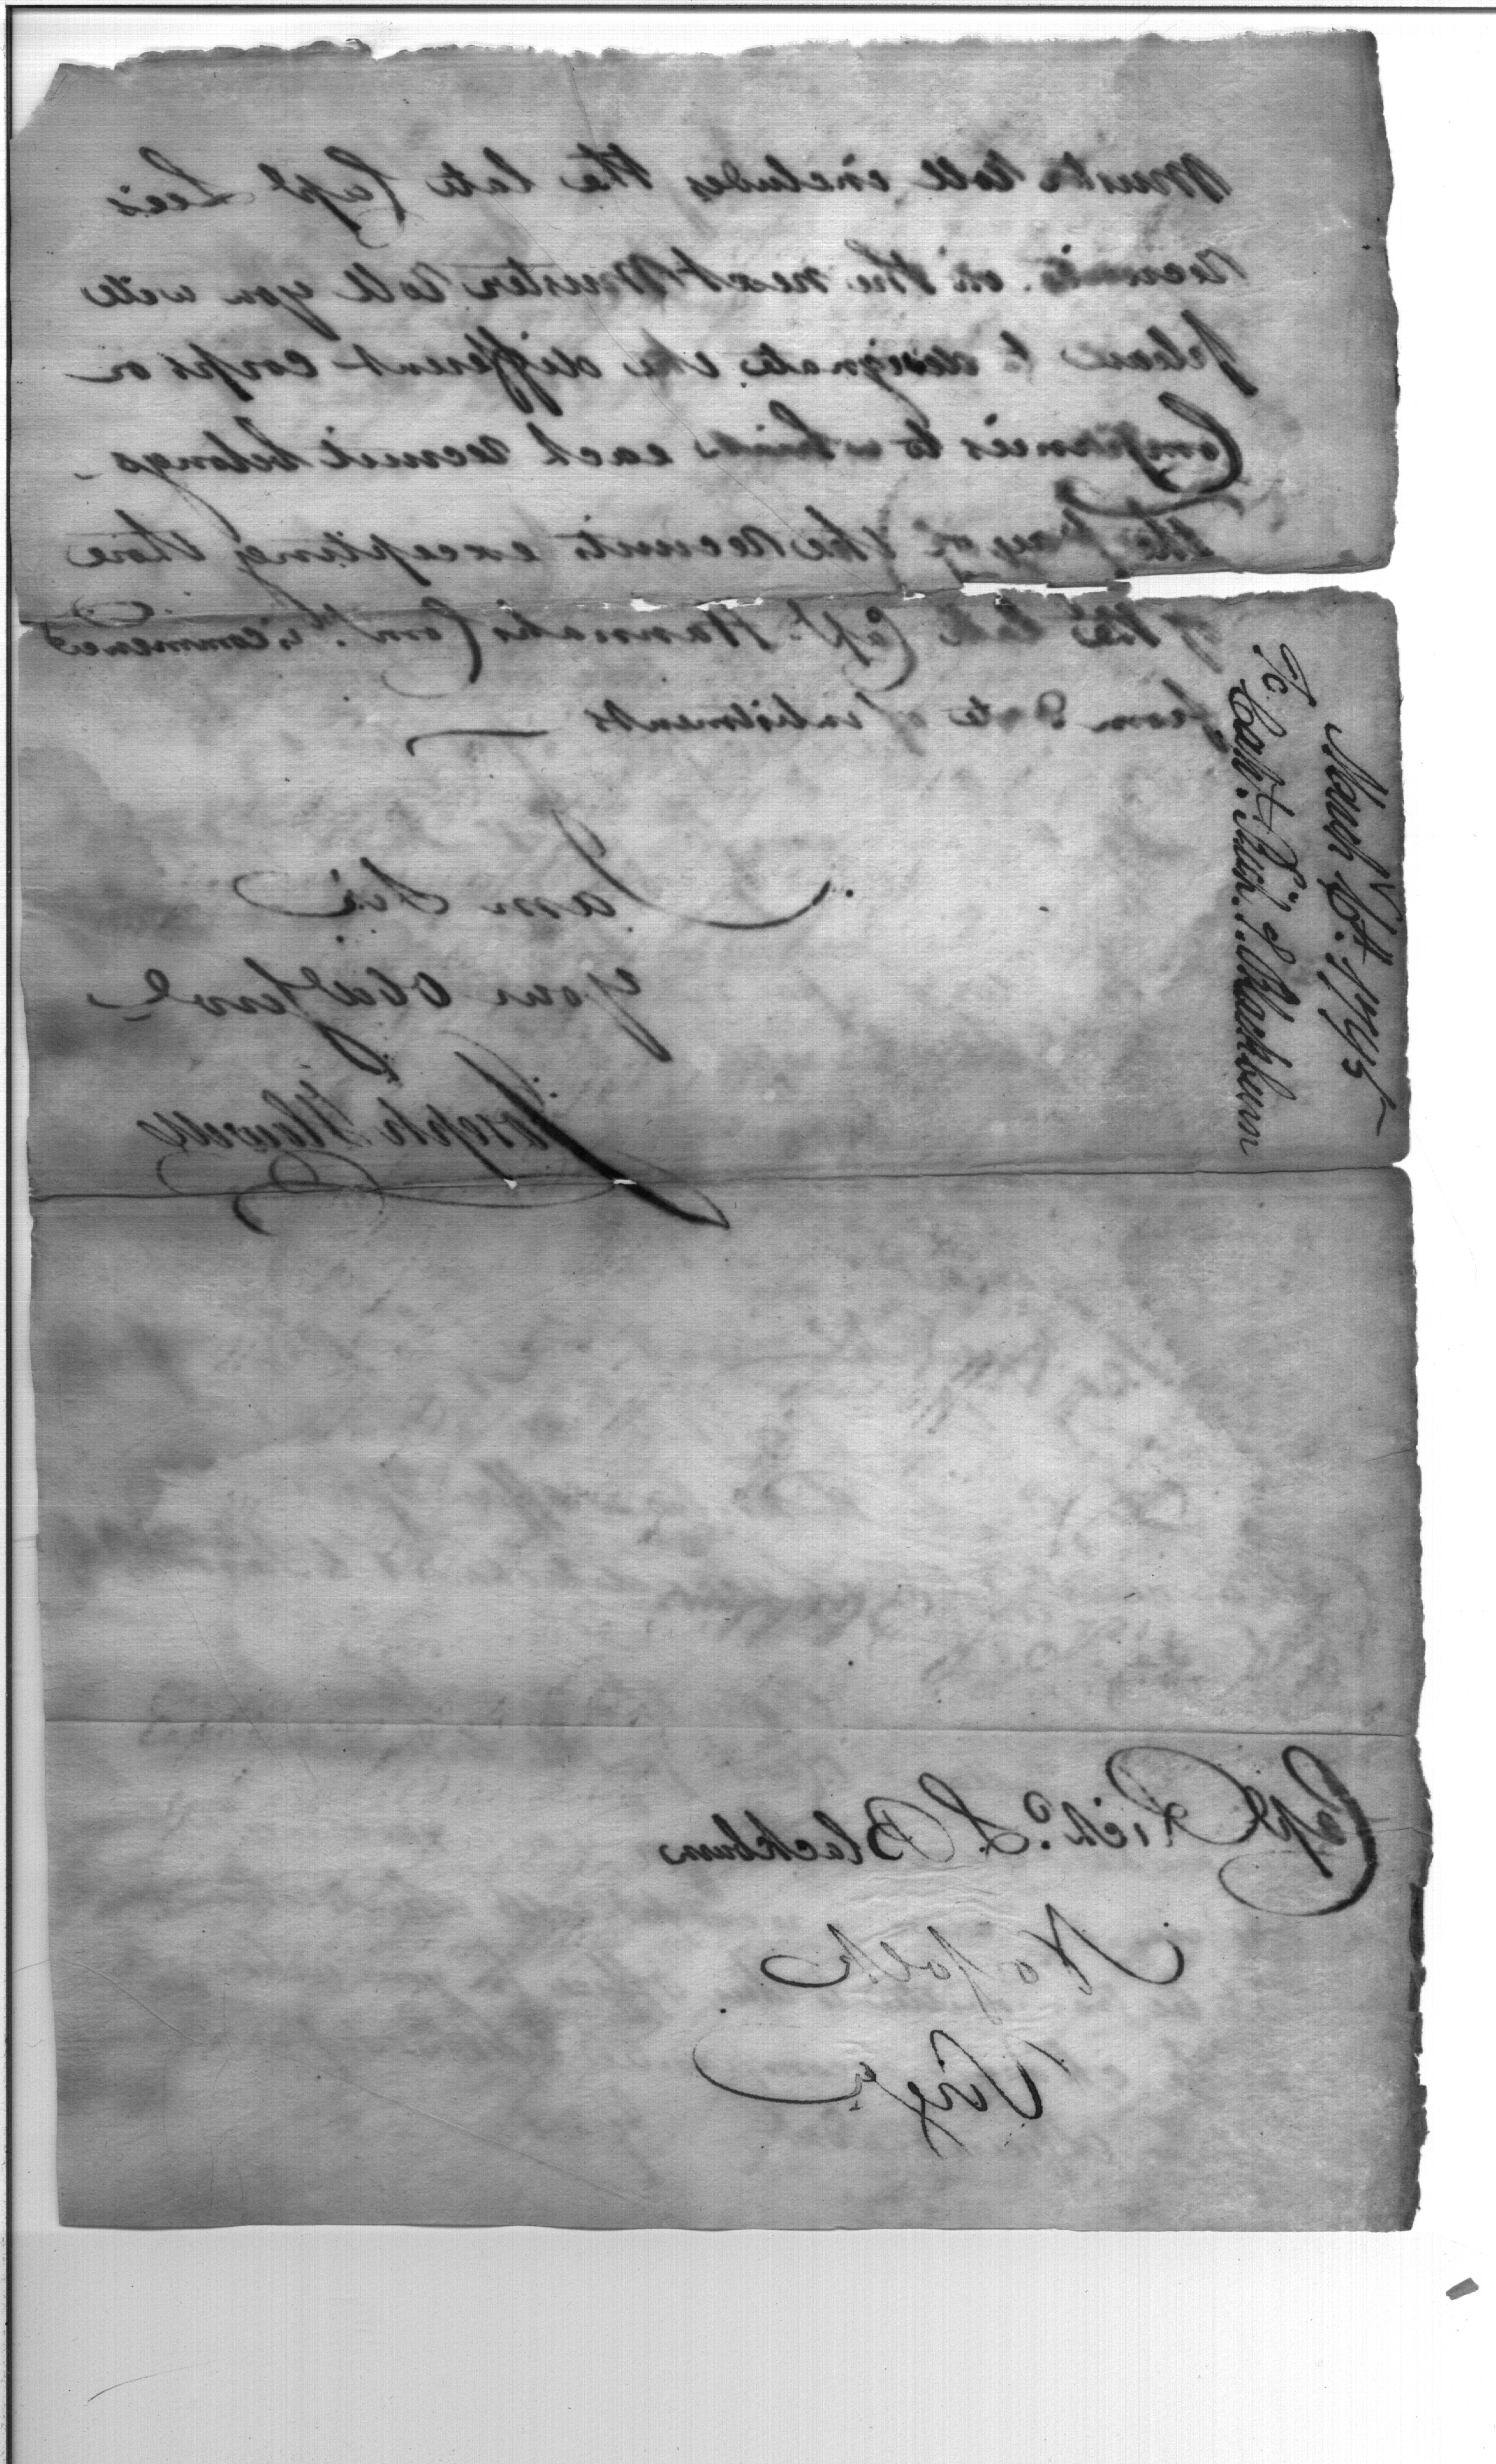 Muster Roll includes the late Capt Lee's
recruits. in the next Muster Roll you will
please to designate the different corps or
Companies to which each recruit belongs -
The pay of the Recruits excepting those
of the late Capt. Hannahs Compy. is commenced
from date of inlistments —
I am Sir
your Obed Servt
Joseph Howell
To
Capt. Rich. Blackburn
March 1795
Capt Richd. S Blackburn
Norfolk
Virga